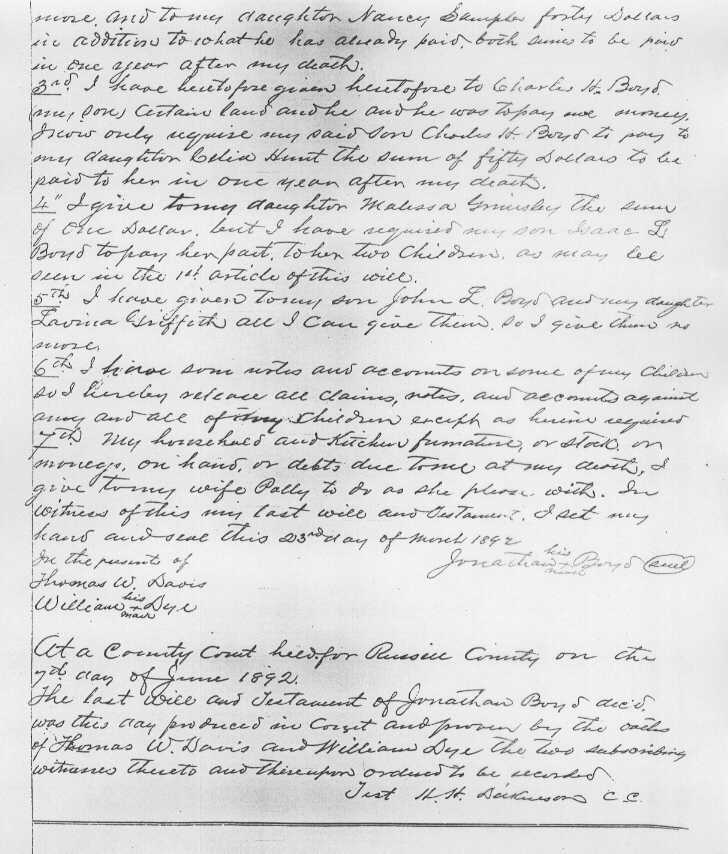 more. and to my daughter Nancy Sample forty Dollars
in addition to what he has already paid. both sums to be paid
in one year after my death.
3rd. I have heretofore given heretofore to Charles H. Boyd
my son Certain land and he and he was to pay me money.
I now only require my said son Charles H. Boyd to pay to
my daughter Celia Hunt the sum of fifty Dollars to be
paid to her in one year after my death.
4" I give to my daughter Malissa Grimsley the sum
of one Dollar. but I have required my son Isaac L.
Boyd to pay her part, to her two Children. as may be
seen in the 1st article of this will.
5th I have given to my son John L. Boyd and my daughter
Lavina Griffith all I can give them. so I give them no
more.
6th I have som notes and accounts on some of my Children
so I hereby release all claims, notes, and accounts against
any and all of my Children except as herin required
7th My household and Kitchen furnature, or stock, or
moneys, on hand, or debts due to me at my death, I
give to my wife Polly to do as she please with. In
witness of this my last will and Testament. I set my
hand and seal this 23rd day of March 1892
In the present of
Jonathan his + mark Boyd (seal)
Thomas W. Davis
William his + mark Dye
At a County Court held for Russell County on the
7th day of June 1892.
The last Will and Testament of Jonathan Boyd dec'd.
was this day produced in Court and proven by the oaths
of Thomas W. Davis and William Dye the two subscribing
witnesses thereto and thereupon ordered to be recorded.
Test H. H. Dickenson C.C.